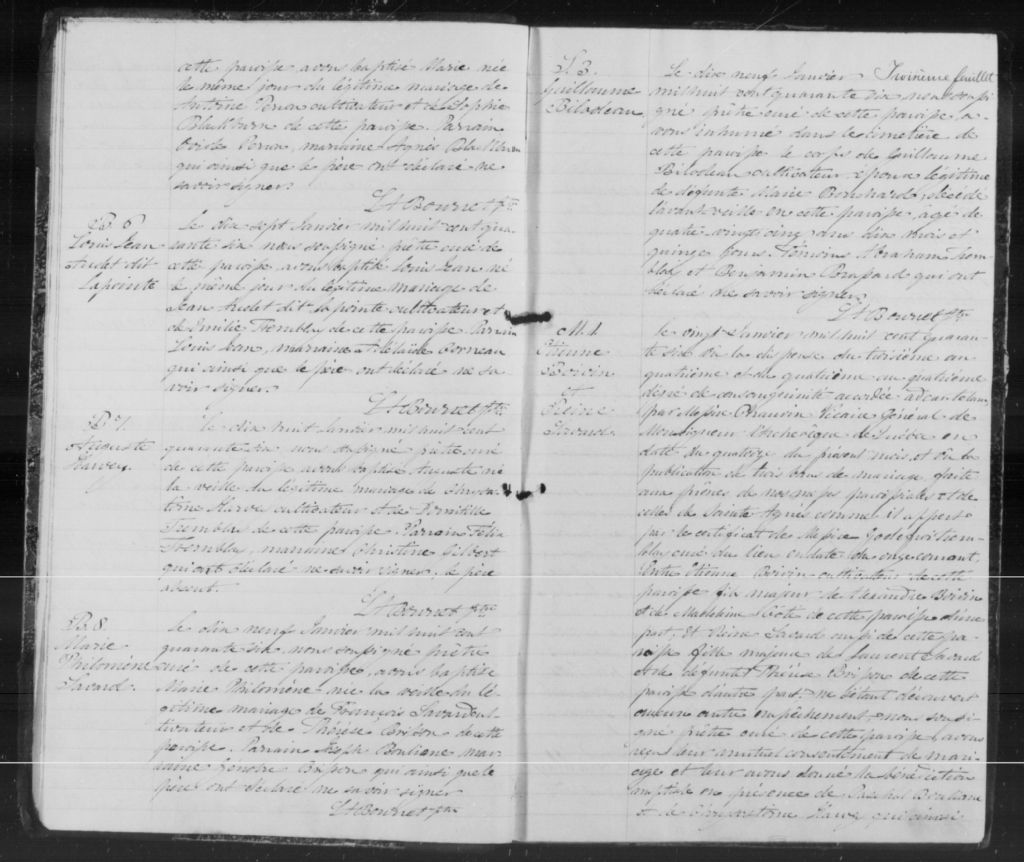 cette paroisse avons baptisé Marie née
le même jour du légitime mariage de
cultivateur et de
Blackburn de cette paroisse. Parrain
marraine Agnès Blackburn
qui ainsi que le père ont déclaré ne
savoir signer.
Bournet ptre
B. 6
Louis Jean
Audet dit
Lapointe
Le dix sept Janvier mil huit cent qua
rante six nous soussigné prêtre curé de
cette paroisse avons baptisé Louis Jean né
le même jour du légitime mariage de
Jean Audet dit Lapointe cultivateur et
de Emilie Tremblay de cette paroisse. Parrain
Louis Jean, marraine Adélaïde
qui ainsi que le père ont déclaré ne sa
voir signer.
Bournet ptre
B. 7.
Auguste
Harvey.
Le dix huit Janvier mil huit cent
quarante six nous soussigné prêtre curé
de cette paroisse avons baptisé Auguste né
la veille du légitime mariage de Chrysos
tôme Harvé cultivateur et de Domitilde
Tremblay de cette paroisse Parrain Félix
Tremblay, marraine Christine Gilbert
qui ont déclaré ne savoir signer, le père
absent.
Bournet ptre
B. 8.
Marie
Philomène
Savard.
Le dix neuf Janvier mil huit cent
quarante six, nous soussigné prêtre
curé de cette paroisse, avons baptisé
Marie Philomène née la veille du lé
gitime mariage de François Savard cul
tivateur et de Thérèse Brisson de cette
paroisse. Parrain Joseph Boulianne mar
raine Brisson qui ainsi que le
père ont déclaré ne savoir signer
Bournet ptre
S. 3.
Guillaume
Bilodeau
Troisième feuillet
Le dix neuf Janvier
mil huit cent quarante six nous soussi
gné prêtre curé de cette paroisse a-
vons inhumé dans le cimetière de
cette paroisse le corps de Guillaume
Bilodeau cultivateur, époux légitime
de défunte Marie Bouchard, décédé
l'avant veille en cette paroisse, âgé de
quatre vingt cinq ans dix mois et
quinze jours. Témoins Abraham Trem
blay et Benjamin qui ont
déclaré ne savoir signer
Bournet ptre
M. 1.
Etienne
Boivin
et
Reine
Savard.
Le vingt Janvier mil huit cent quaran-
te six vu la dispense du troisième au
quatrième et du quatrième au quatrième
degré de consanguinité accordée
par Messire Vicaire Général de
Monseigneur l'Archevêque de Québec en
date du quatorze du présent mois, et vu la
publication de trois bans de mariage faite
aux prônes de nos messes paroissiales et de
celles de Sainte Agnès comme il appert
par le certificat de Messire Trem-
blay curé du lieu en date du onze courant,
Entre Etienne Boivin cultivateur de cette
paroisse fils majeur de Alexandre Boivin
et de Madeleine Côté de cette paroisse d'une
part, Et Reine Savard aussi de cette pa-
roisse fille majeure de Laurent Savard
et de défunte Thérèse Brisson de cette
paroisse d'autre part. ne s'étant découvert
aucun autre empêchement, nous soussi-
gné prêtre curé de cette paroisse avons
reçu leur mutuel consentement de mari-
age et leur avons donné la bénédiction
nuptiale en présence de Boulianne
et de Chrysostôme Harvey qui ainsi